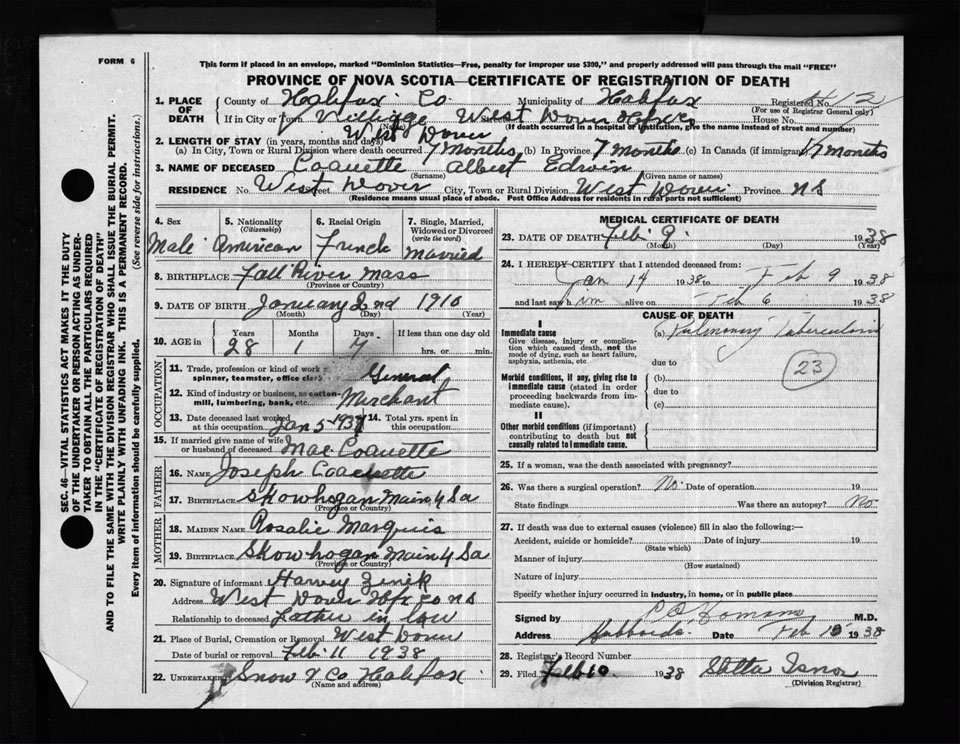 FORM 6
This form if placed in an envelope, marked "Dominion Statistics—Free, penalty for improper use $300," and properly addressed will pass through the mail "FREE"
PROVINCE OF NOVA SCOTIA—CERTIFICATE OF REGISTRATION OF DEATH
1. PLACE OF DEATH { County of Halifax Co Municipality of Halifax Registered No.
(For use of Registrar General only)
If in City or Town Village West Dover Hfx Co House No.
(Name) (If death occurred in a hospital or institution, give the name instead of street and number)
2. LENGTH OF STAY (in years, months and days) West Dover
(a) In City, Town or Rural Division where death occurred 7 months (b) In Province 7 months (c) In Canada (if immigrant) 7 months
3. NAME OF DECEASED Coquette Albert Edwin
(Surname) (Given name or names)
RESIDENCE No. West Dover Street City, Town or Rural Division West Dover Province NS
(Residence means usual place of abode. Post Office Address for residents in rural parts not sufficient)
4. Sex Male
5. Nationality (Citizenship) American
6. Racial Origin French
7. Single, Married, Widowed or Divorced (write the word) Married
8. BIRTHPLACE Fall River Mass
(Province or County)
9. DATE OF BIRTH January 2nd 1910
(Month) (Day) (Year)
10. AGE in { Years 28 Months 1 Days 7 If less than one day old hrs. or min.
OCCUPATION
11. Trade, profession or kind of work spinner, teamster, office clerk General
12. Kind of industry or business, as cotton-mill, lumbering, bank, etc. Merchant
13. Date deceased last worked at this occupation Jan 5 1937 14. Total yrs. spent in this occupation
15. If married give name of wife or husband of deceased Mae Coquette
FATHER
16. Name Joseph Coquette
17. Birthplace Skowhogan Main U Sa
(Province or Country)
MOTHER
18. Maiden Name Rosalie Marquis
19. Birthplace Skowhogan Main U Sa
(Province or Country)
20. Signature of informant Harvey Zinik
Address West Dover Hfx Co NS
Relationship to deceased Father in law
21. Place of Burial, Cremation or Removal West Dover
Date of burial or removal Feb 11 1938
22. UNDERTAKER Snow & Co Halifax
(Name and address)
MEDICAL CERTIFICATE OF DEATH
23. DATE OF DEATH Feb 9 1938
(Month) (Day) (Year)
24. I HEREBY CERTIFY that I attended deceased from:
Jan 14 1938 to Feb 9 1938
and last saw him alive on Feb 6 1938
CAUSE OF DEATH
I
Immediate cause
Give disease, injury or complication which caused death, not the mode of dying, such as heart failure, asphyxia, asthenia, etc.
(a) Pulmonary Tuberculosis
due to
23
Morbid conditions, if any, giving rise to immediate cause (stated in order proceeding backwards from immediate cause).
(b)
due to
(c)
II
Other morbid conditions (if important) contributing to death but not causally related to immediate cause.
25. If a woman, was the death associated with pregnancy?
26. Was there a surgical operation? No Date of operation 19
State findings Was there an autopsy? No
27. If death was due to external causes (violence) fill in also the following:—
Accident, suicide or homicide? Date of injury 19
(State which)
Manner of injury
(How sustained)
Nature of injury
Specify whether injury occurred in industry, in home, or in public place
Signed by M.D.
Address Hubbards Date Feb 1938
28. Registrar's Record Number
29. Filed Feb 10 1938 Stella Isnor
(Division Registrar)
SEC. 46—VITAL STATISTICS ACT MAKES IT THE DUTY
OF THE UNDERTAKER OR PERSON ACTING AS UNDER-
TAKER TO OBTAIN ALL THE PARTICULARS REQUIRED
IN THE "CERTIFICATE OF REGISTRATION OF DEATH"
AND TO FILE THE SAME WITH THE DIVISION REGISTRAR WHO SHALL ISSUE THE BURIAL PERMIT.
WRITE PLAINLY WITH UNFADING INK. THIS IS A PERMANENT RECORD.
Every item of information should be carefully supplied. (See reverse side for instructions.)